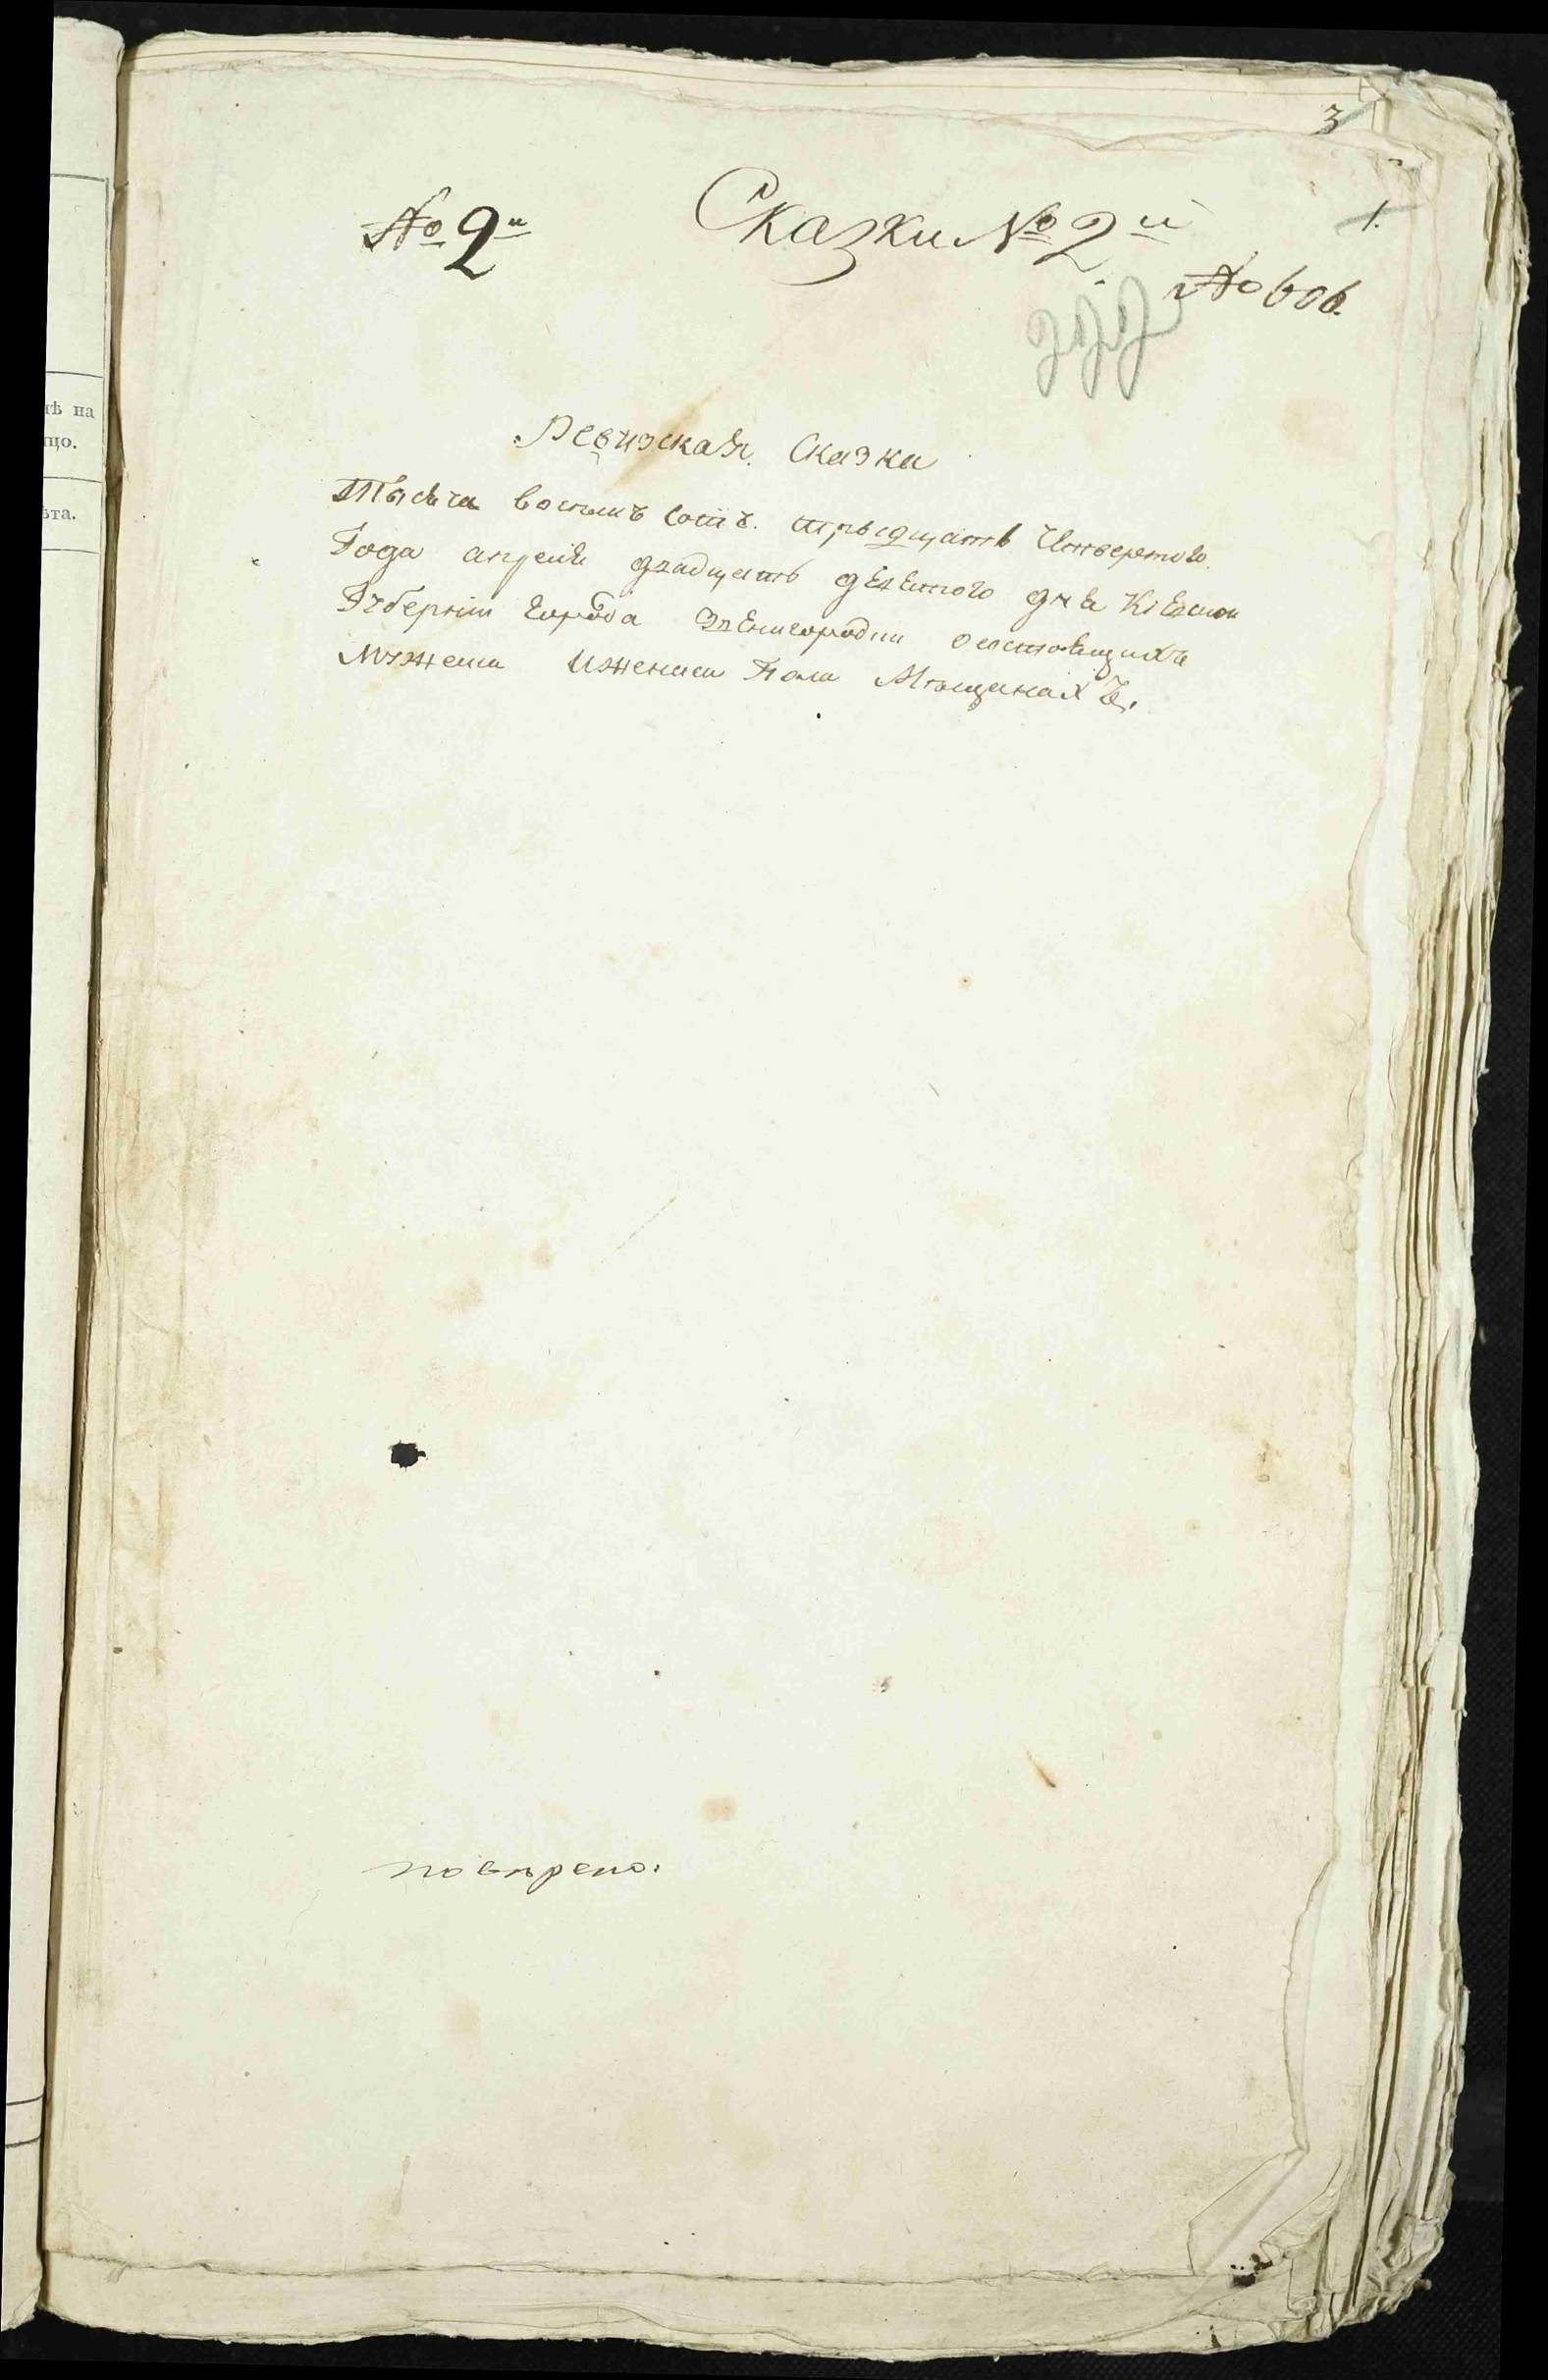 3
1.
№ 2й
Сказки № 2й
№ 606.
Ревизская Сказка
Тысеча восемъ сотъ. трыдцать Четвертого
Года апреля двадцать девятого дня Кіевской
Губерніи города Звенигородки о состоящихъ
Мужеска Иженска Пола Мѣщанахъ.
повѣрено:
ѣ на
що.
ѣта.